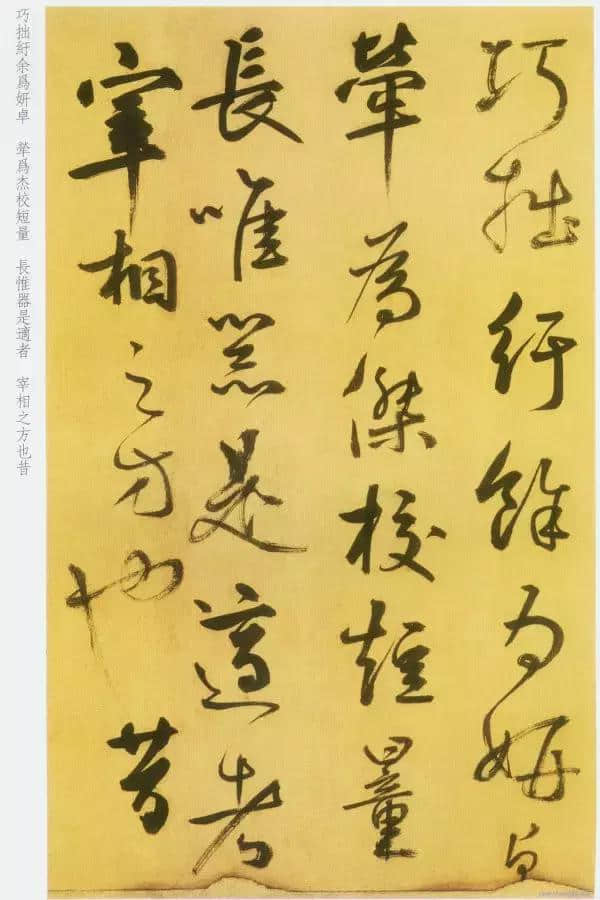 巧拙紆餘为妍卓
犖為傑校短量
長唯器是適者
宰相之方也昔
巧拙紆余爲妍卓 犖爲杰校短量 長惟器是適者 宰相之方也昔